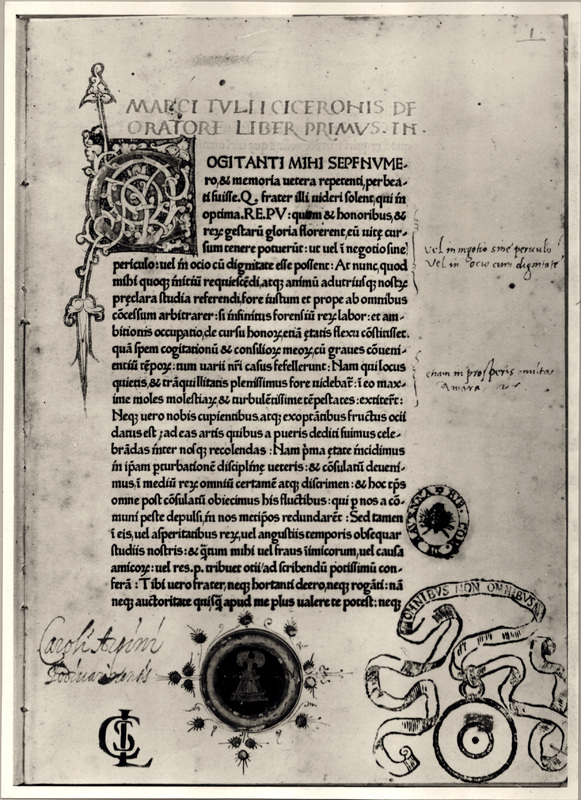 1
MARCI TULII CICERONIS DE
ORATORE LIBER PRIMUS. IN.
COGITANTI MIHI SEPENVME-
ro, & memoria uetera repetenti, per bea-
ti fuisse. Q. frater illi uideri solent, qui in
optima. RE.PV: quom & honoribus, &
reꝝ gestarū gloria florerent, eū uitę cur-
sum tenere potuerūt: ut uel ī negotio sine
periculo: uel in ocio cū dignitate esse possent: At nunc, quod
mihi quoqꝫ initiū requiescēdi, atqꝫ animū ad utriusqꝫ nostꝝ
pręclara studia referendi, fore iustum et prope ab omnibus
cōcessum arbitrarer: si infinitus forensiū reꝝ labor: et am-
bitionis occupatio, de cursu honoꝝ, etiā ętatis flexu cōstitisset.
quā spem cogitationū & consilioꝝ meoꝝ, cū graues cōueni-
entiū tēpoꝝ: tum uarii nr̄i casus fefellerunt: Nam qui locus
quietis, & trāquillitatis plenissimus fore uidebat̄: ī eo max-
ime moles molestiaꝝ, & turbulētissime tēpestates: extiterēt:
Neqꝫ uero nobis cupientibus atqꝫ exoptātibus fructus ocii
datus est; ad eas artis quibus a pueris dediti fuimus cele-
brādas inter nosqꝫ recolendas: Nam p̄ma ętate incidimus
in ip̄am ꝑturbationē disciplinę ueteris: & cōsulatū deueni-
mus, ī mediū reꝝ omniū certamē atqꝫ discrimen: & hoc tp̄s
omne post cōsulatū obiecimus his fluctibus: qui ꝑ nos a cō-
muni peste depulsi, in nos metip̄os redundarēt: Sed tamen
ī eis, uel asperitatibus reꝝ, uel angustiis temporis obsequar
studiis nostris: & q̄tum mihi uel fraus īimicorum, uel causa
amicoꝝ: uel res.p. tribuet otii, ad scribendū potissimū con-
ferā: Tibi uero frater, neqꝫ hortanti deero, neqꝫ rogāti: nā
neqꝫ auctoritate quisq̄ apud me plus ualere te potest: neqꝫ
vel in negotio sine periculo
vel in ocio cum dignitate
etiam in prosperis multa
amara
Caroli
OMNIBVS NON OMNIBVS